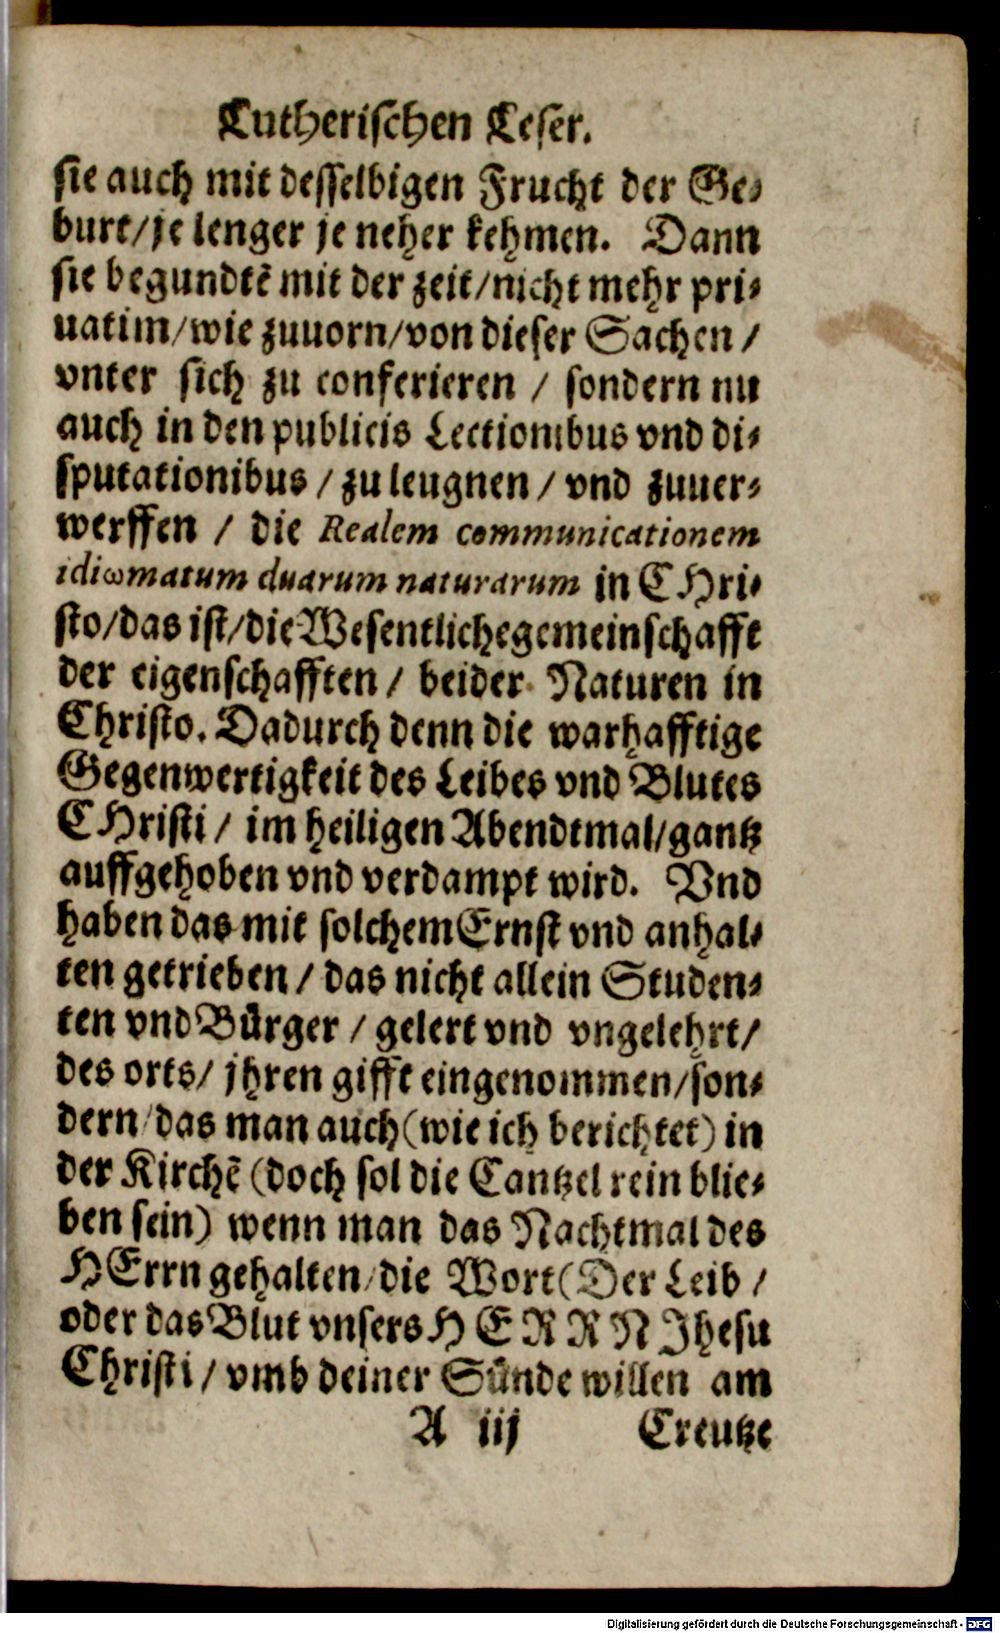 Lutherischen Leser.
sie auch mit desselbigen Frucht der Ge-
burt/je lenger je neher kehmen. Dann
sie begundtē mit der zeit/nicht mehr pri-
uatim/wie zuuorn/von dieser Sachen /
vnter sich zu conferieren / sondern nu
auch in den publicis Lectionibus vnd di-
sputationibus / zu leugnen / vnd zuuer-
werffen / die Realem communicationem
idiωmatum duarum naturarum in CHri-
sto/das ist/die Wesentlichegemeinschafft
der eigenschafften / beider Naturen in
Christo. Dadurch denn die warhafftige
Gegenwertigkeit des Leibes vnd Blutes
CHristi / im heiligen Abendtmal/gantz
auffgehoben vnd verdampt wird. Vnd
haben das mit solchem Ernst vnd anhal-
ten getrieben / das nicht allein Studen-
ten vnd Bürger / gelert vnd vngelehrt/
des orts/ jhren gifft eingenommen/son-
dern/das man auch (wie ich berichtet) in
der Kirchē (doch sol die Cantzel rein blie-
ben sein) wenn man das Nachtmal des
HErrn gehalten/die Wort (Der Leib /
oder das Blut vnsers HERRN Jhesu
Christi / vmb deiner Sünde willen am
A iij Creutze
Digitalisierung gefördert durch die Deutsche Forschungsgemeinschaft - DFG